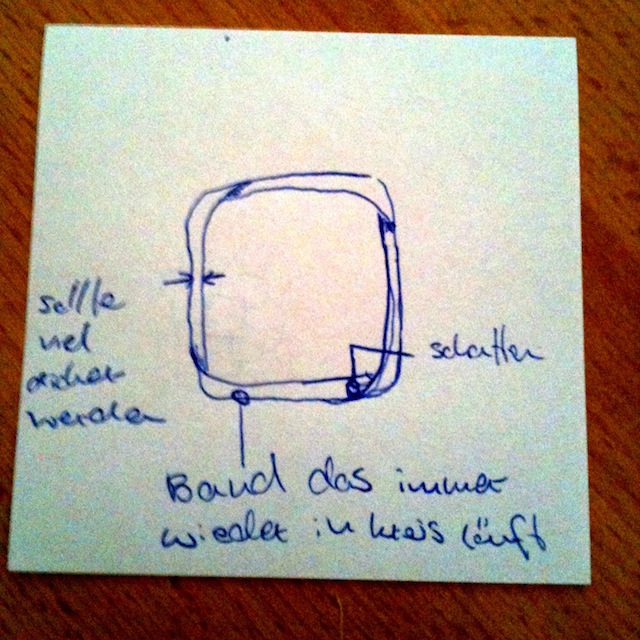 sollte
viel
dicker
werden
schatten
Band das immer
wieder in kreis läuft